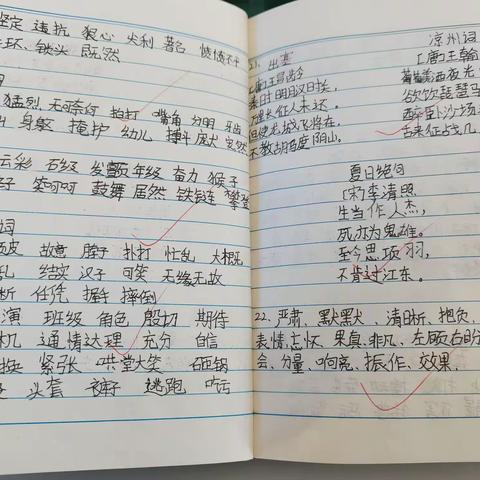 坚定 违抗 狠心 尖利 著名 愤愤不平
铁头 既然
猛烈 无可奈何 拍打 嘴角 分明 牙齿
身躯 掩护 幼儿 搏斗 庞大 突然
云彩 石级 发颤 年级 奋力 猴子
笑呵呵 鼓舞 居然 铁链 攀登
词
皮 故意 脖子 扑打 忙乱
结实 汉子 可笑 无缘无故
断 任凭 握手 摔倒
演 班级 角色 殷切 期待
机 通情达理 充分 自信
挨 紧张 哄堂大笑 砸锅
头套 裤子 逃跑 吃亏
出塞
[唐]王昌龄
秦时明月汉时关,
万里长征人未还。
但使龙城飞将在,
不教胡马度阴山。
凉州词
[唐]王翰
葡萄美酒夜光
欲饮琵琶马
醉卧沙场
古来征战几
夏日绝句
[宋]李清照
生当作人杰,
死亦为鬼雄。
至今思项羽,
不肯过江东。
22、严肃、默默、清晰、抱负、
表情、忘怀、果真、非凡、左顾右盼
会、分量、响亮、振作、效果。